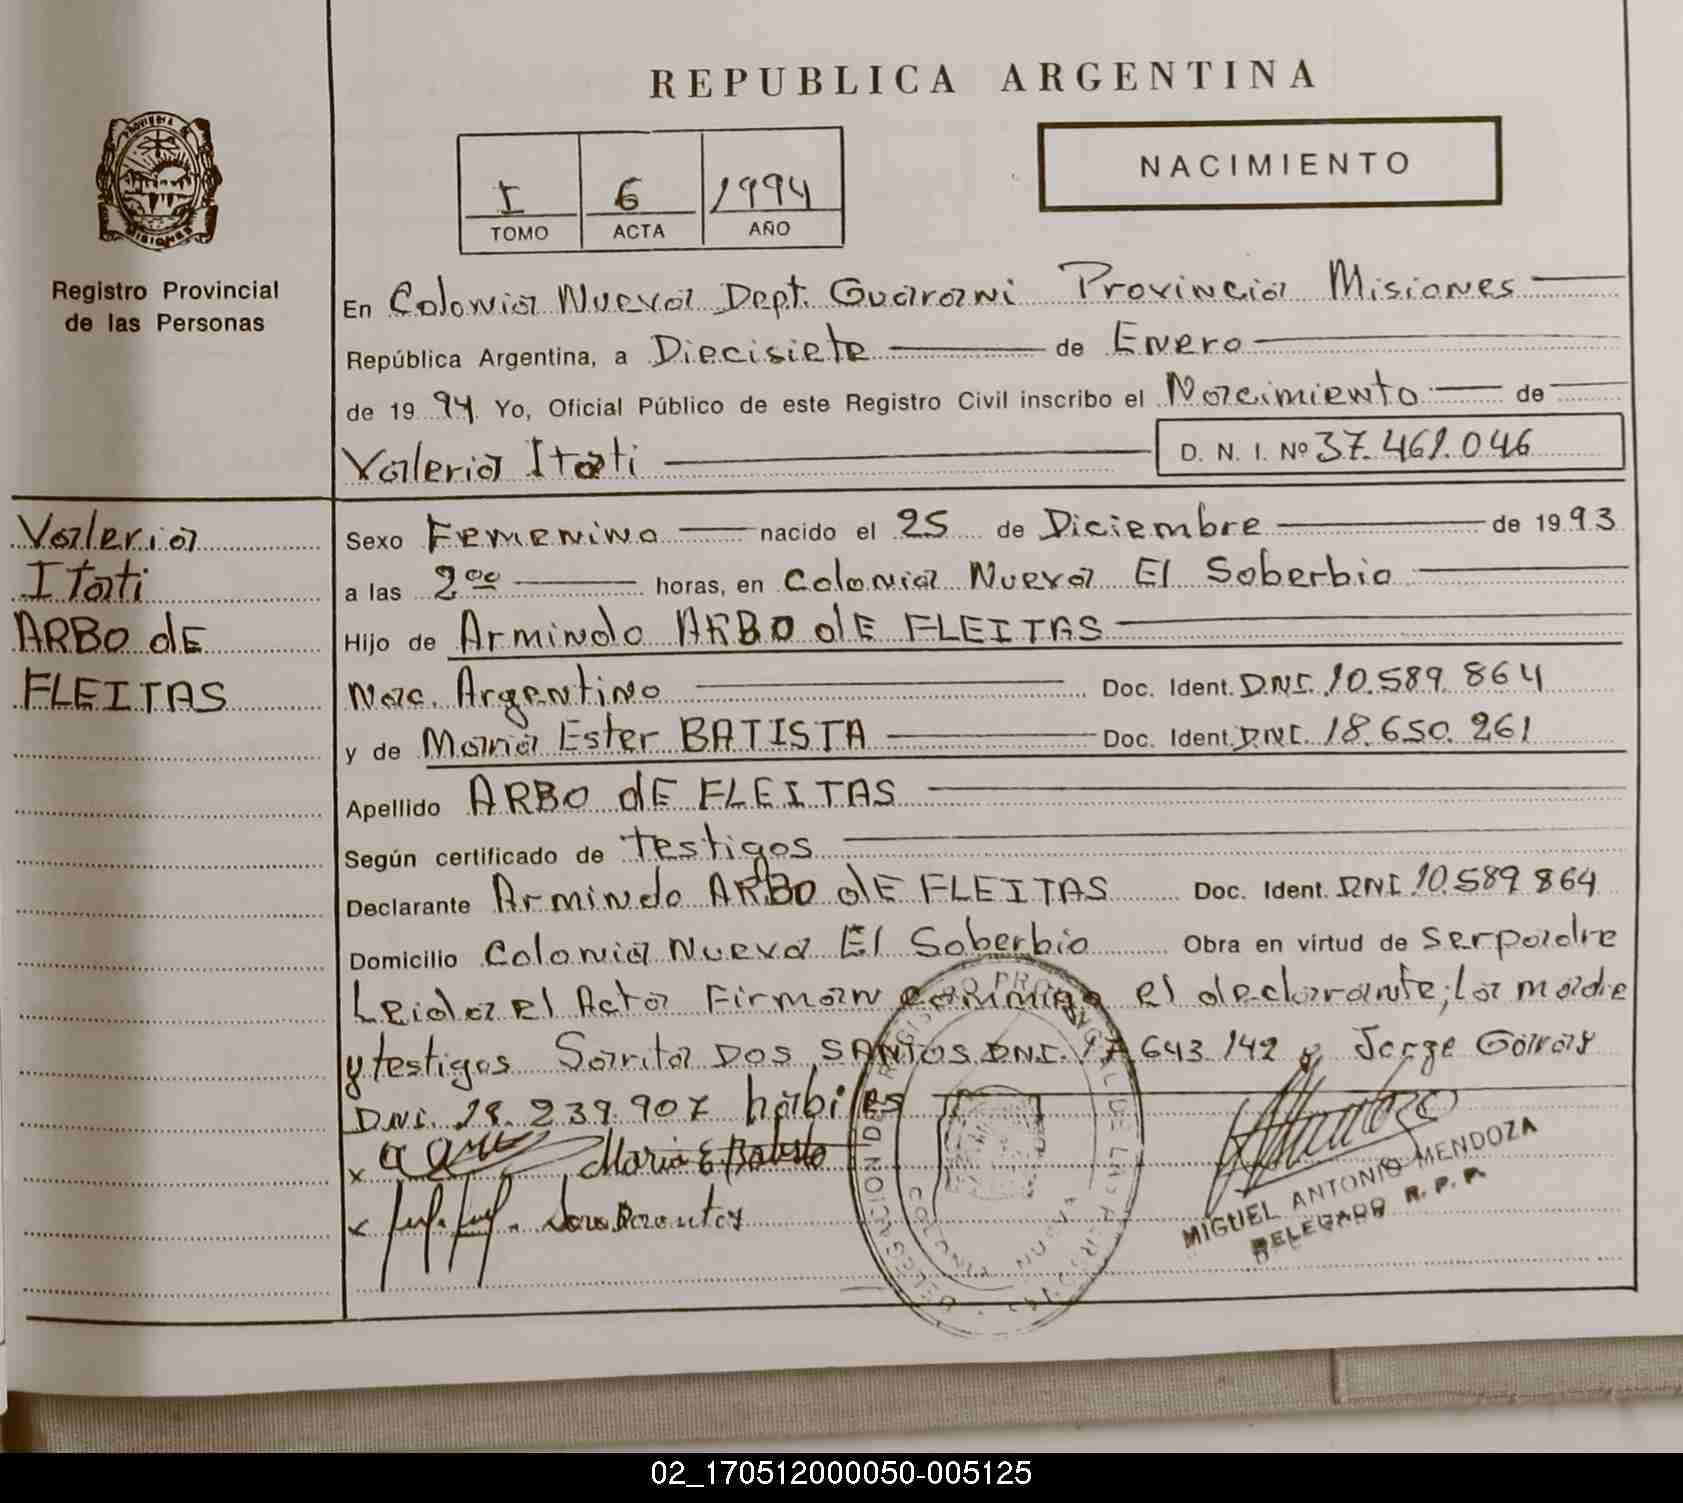 REPUBLICA ARGENTINA
PROVINCIA DE
MISIONES
Registro Provincial
de las Personas
I 6 1994
TOMO ACTA AÑO
NACIMIENTO
En Colonia Nueva Dept. Guarani Provincia Misiones
República Argentina, a Diecisiete de Enero
de 19 94 Yo, Oficial Público de este Registro Civil inscribo el Nacimiento de
Valeria Itati D. N. I. Nº 37.461.046
Valeria
Itati
ARBO dE
FLEITAS
Sexo Femenino nacido el 25 de Diciembre de 19 93
a las 2 00 horas, en Colonia Nueva El Soberbio
Hijo de Armindo ARBO dE FLEITAS
Nac. Argentino Doc. Ident. DNI. 10.589.864
y de Maria Ester BATISTA Doc. Ident. DNI. 18.650.261
Apellido ARBO dE FLEITAS
Según certificado de Testigos
Declarante Armindo ARBO dE FLEITAS Doc. Ident. DNI. 10.589 864
Domicilio Colonia Nueva El Soberbio Obra en virtud de Ser padre
Leida el Acta Firman conmigo el declarante, La madre
y testigos Sarita DOS SANTOS DNI. 17.643.142 y Jorge Garay
DNI. 28.239.907 habiles
x Maria E Batista
x
MIGUEL ANTONIO MENDOZA
DELEGADO R. P. P.
02_170512000050-005125